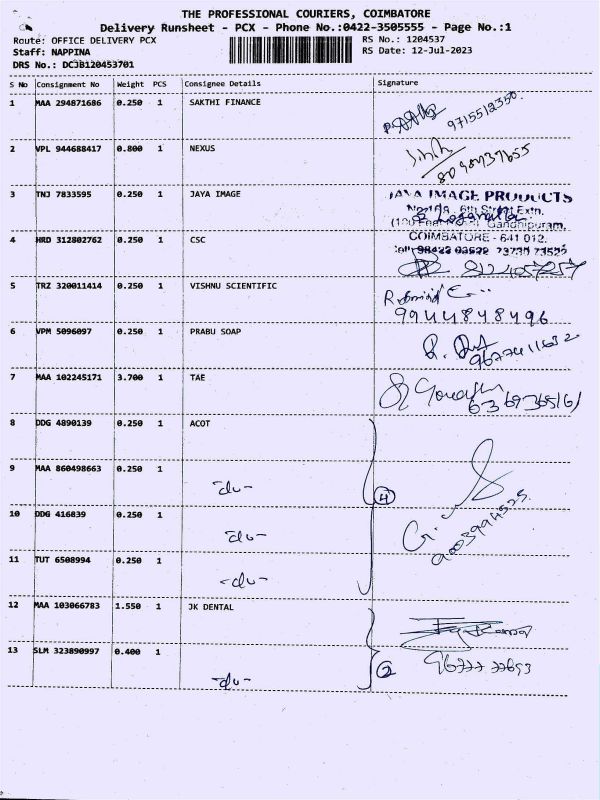 THE PROFESSIONAL COURIERS, COIMBATORE
Delivery Runsheet - PCX - Phone No.:0422-3505555 - Page No.:1
Route: OFFICE DELIVERY PCX RS No.: 1204537
Staff: NAPPINA RS Date: 12-Jul-2023
DRS No.: DCJB120453701
S No Consignment No Weight PCS Consignee Details Signature
1 MAA 294871686 0.250 1 SAKTHI FINANCE
9715512350
2 VPL 944688417 0.800 1 NEXUS
3 TNJ 7833595 0.250 1 JAYA IMAGE JAYA IMAGE PRODUCTS
6th Street Extn.
Gandhipuram,
4 HRD 312802762 0.250 1 CSC COIMBATORE - 641 012.
5 TRZ 320011414 0.250 1 VISHNU SCIENTIFIC
9944848496
6 VPM 5096097 0.250 1 PRABU SOAP
9677411632
7 MAA 102245171 3.700 1 TAE
6369369161
8 DDG 4890139 0.250 1 ACOT
9 MAA 860498663 0.250 1
-du- 4
10 DDG 416839 0.250 1
-du- 9003994525
11 TUT 6508994 0.250 1
-du-
12 MAA 103066783 1.550 1 JK DENTAL
13 SLM 323890997 0.400 1
-du- 2